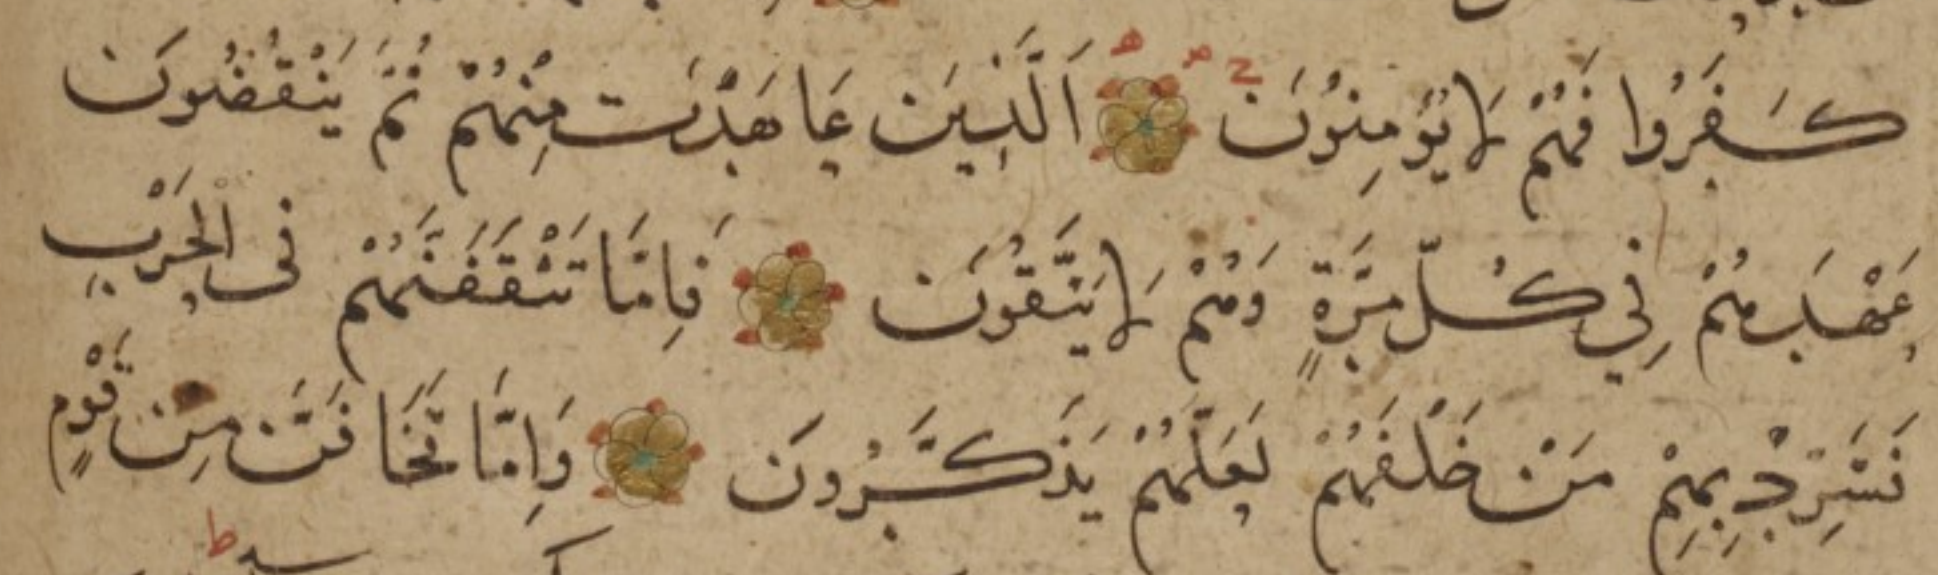 كَفَرُوا فَهُمْ لَا يُؤْمِنُونَ اَلَّذِينَ عَاهَدْتَ مِنْهُمْ ثُمَّ يَنْقُضُونَ
عَهْدَهُمْ فِي كُلِّ مَرَّةٍ وَهُمْ لَا يَتَّقُونَ فَاِمَّا تَثْقَفَنَّهُمْ فِى الْحَرْبِ
فَشَرِّدْ بِهِمْ مَنْ خَلْفَهُمْ لَعَلَّهُمْ يَذَّكَّرُونَ وَاِمَّا تَخَافَنَّ مِنْ قَوْمٍ